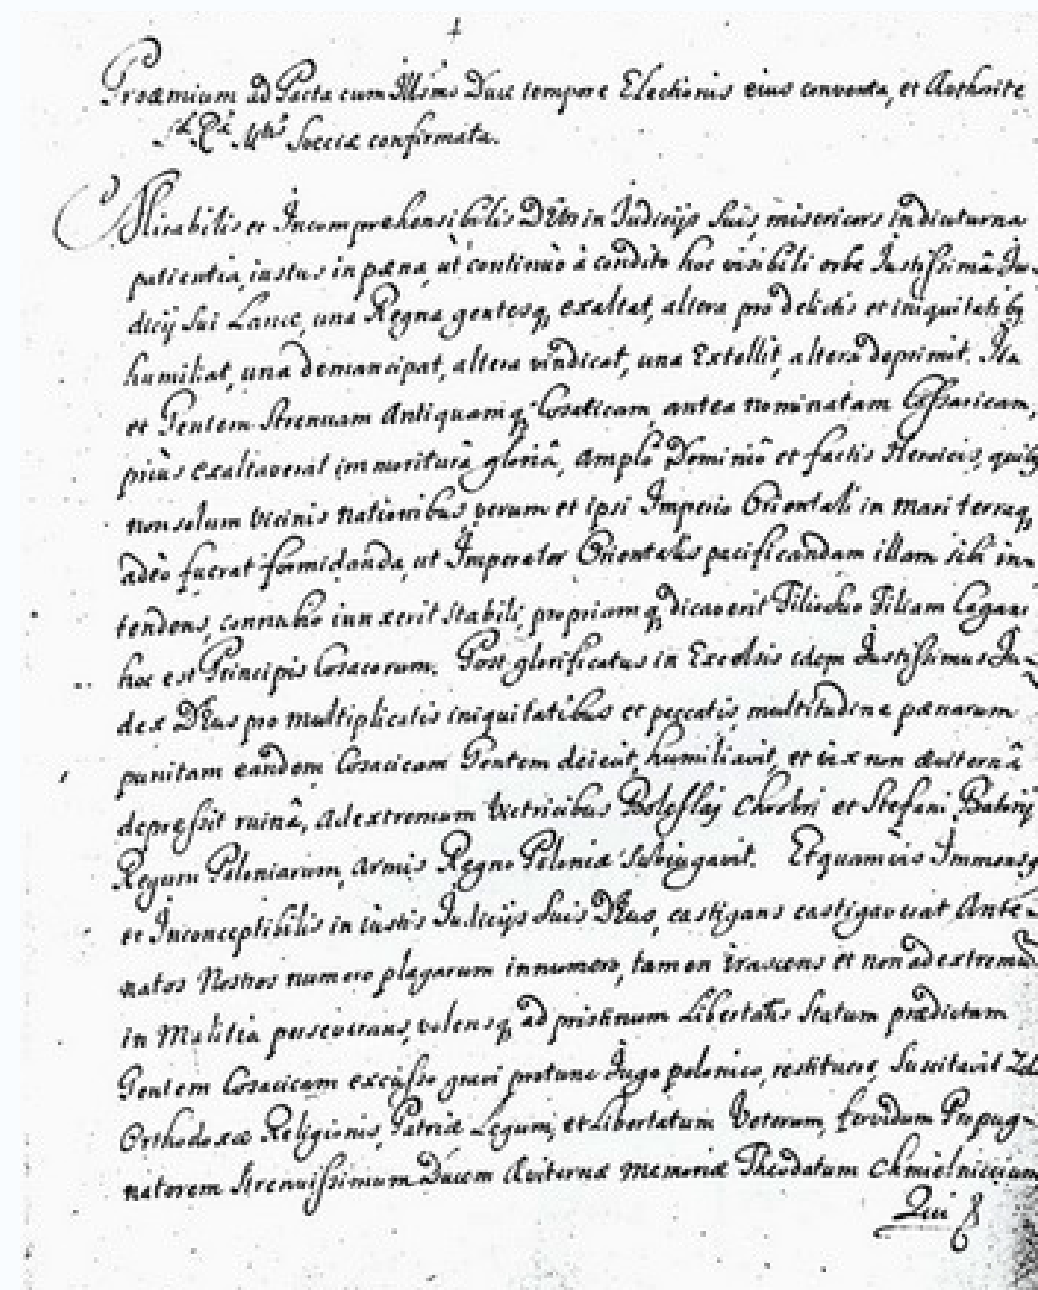 Proœmium ad Pacta cum Illsmo Duce tempore Electionis eius conventa, et Authorite
Sæ Ræ Mtis Sveciæ confirmata.
Mirabilis et Incomprehensibilis DEus in Judicijs suis, misericors in diuturna
patientia, iustus in pœna, ut continuò à condito hoc visibili orbe Justissimâ Ju-
dicij sui Lance, una Regna gentesq, exaltat, altera pro delictis et iniquitatibq
humiliat, una demancipat, altera vindicat, una Extollit, altera deprimit. Ita
et Gentem strenuam Antiquamq, Cosaticam, antea nominatam Cossaricam,
priùs exaltaverat immoriturâ gloriâ, amplô Dominiô et factis Heroicis, quibq
non solum vicinis nationibus, verum et ipsi Imperio Orientali in mari terraq,
adeò fuerat formidanda, ut Imperator Orientalis pacificandam illam sibi in-
tendens, connubio iunxerit stabili, propriamq, dicaverit Filio suo Filiam Cagani
hoc est Principis Cosacorum. Post glorificatus in Excelsis idem Justissimus Ju-
dex DEus pro multiplicatis iniquitatibus et peccatis, multitudine pœnarum
punitam eandem Cosacicam Gentem deiecit, humiliavit, et vix non æviternâ
depressit ruinâ, ad extremum victricibus Boleslaj Chrobri et Stefani Batorij
Regum Poloniarum, armis Regno Poloniæ subiugavit. Et quamvis Immensq
et Inconceptibilis in iustis Judicijs suis DEus, castigans castigaverat Ante-
natos Nostros numero plagarum innumero, tamen irascens et non ad extremū
in Malitia perseverans, volensq, ad pristinum Libertatis Statum prædictam
Gentem Cosacicam excusso gravi protunc Jugo polonico, restituere, Suscitavit Zel
Orthodoxæ Religionis, Patriæ Legum, et Libertatum Veterum, fervidum Propug-
natorem strenuissimum Ducem Æviternæ memoriæ Theodatum Chmielniccium
Qui